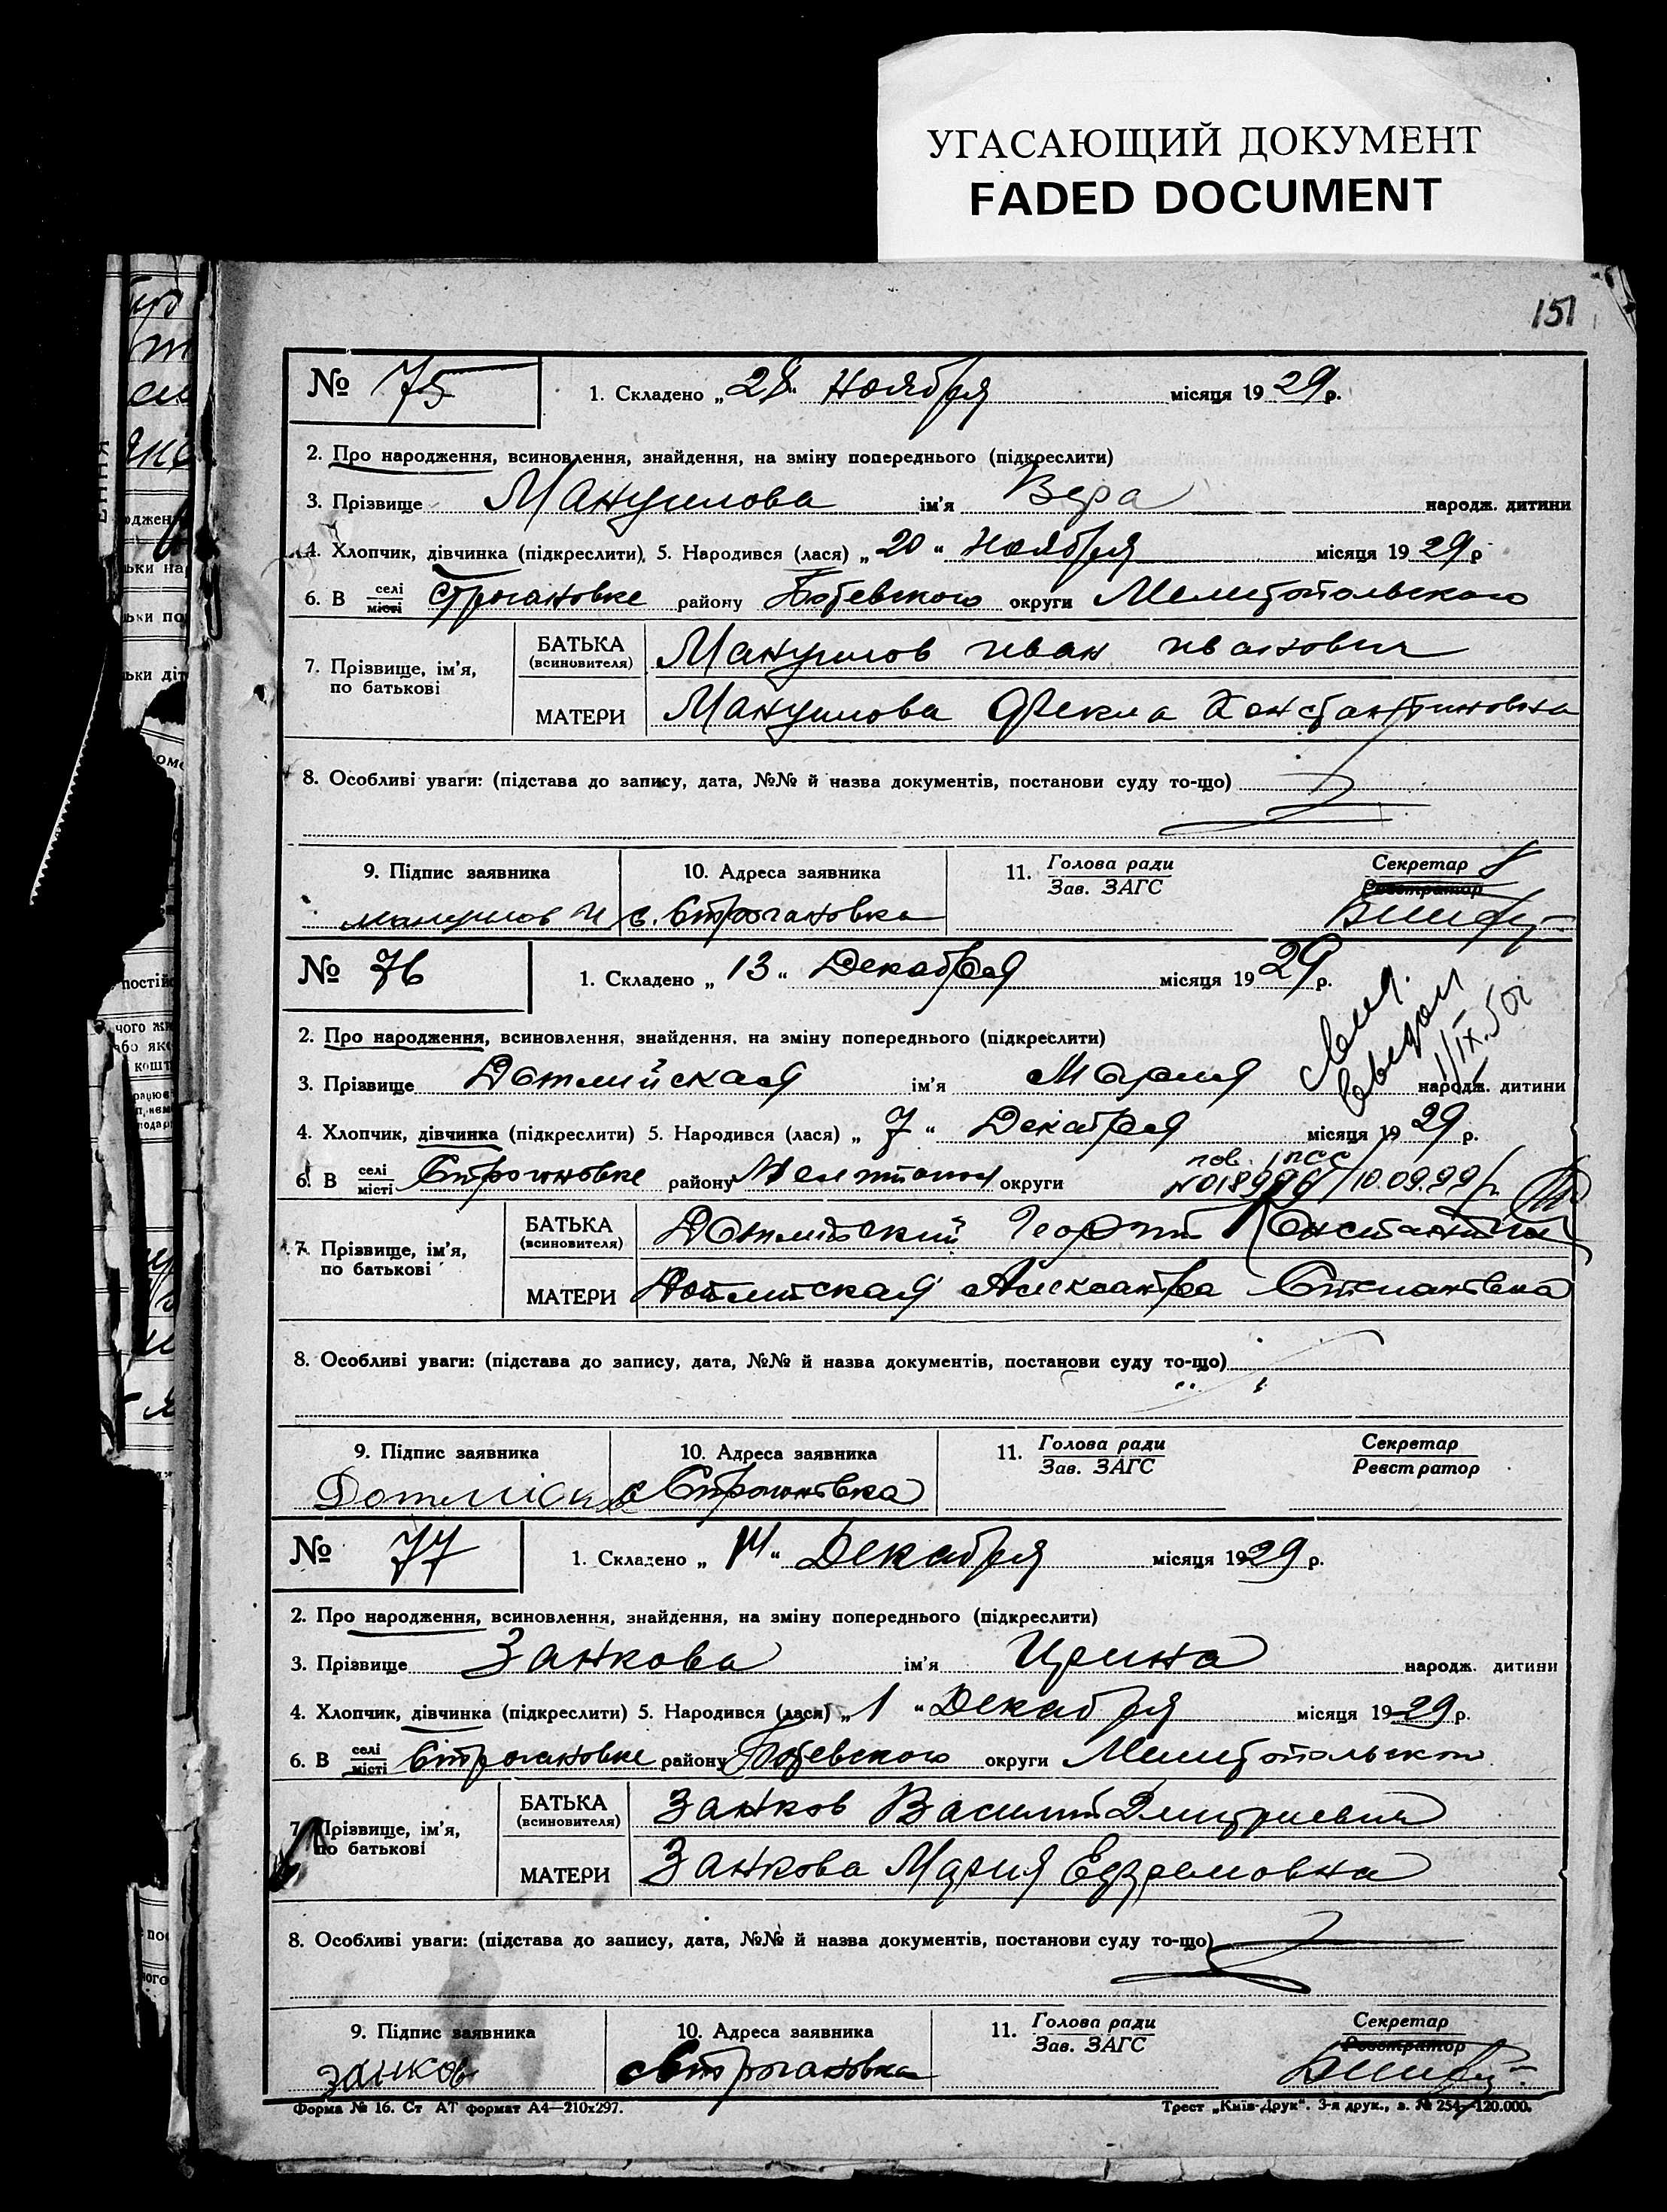 УГАСАЮЩИЙ ДОКУМЕНТ
FADED DOCUMENT
151
№ 75 1. Складено „28“ Ноября місяця 1929 р.
2. Про народження, всиновлення, знайдення, на зміну попереднього (підкреслити)
3. Прізвище Мануилова ім'я Вера народж. дитини
4. Хлопчик, дівчинка (підкреслити) 5. Народився (лася) „20“ Ноября місяця 1929 р
6. В селі місті Строгановке району Ботевского округи Мелитопольского
7. Прізвище, ім'я, по батькові
БАТЬКА (всиновителя) Мануилов иван иванович
МАТЕРИ Мануилова Фекла Константиновна
8. Особливі уваги: (підстава до запису, дата, №№ й назва документів, постанови суду то-що)
9. Підпис заявника 10. Адреса заявника 11. Голова ради Зав. ЗАГС Секретар Реєстратор
мануилов И с. Строгановка
№ 76 1. Складено „13“ Декабря місяця 1929 р.
2. Про народження, всиновлення, знайдення, на зміну попереднього (підкреслити)
3. Прізвище Дотлийская ім'я Мария народж. дитини
4. Хлопчик, дівчинка (підкреслити) 5. Народився (лася) „7“ Декабря місяця 1929 р.
6. В селі місті Строгоновке району Мелитопол округи
пов. 10.09.99 р.
7. Прізвище, ім'я, по батькові
БАТЬКА (всиновителя) Дотлийский Георгий Константин
МАТЕРИ Дотлийская Александра Степановна
8. Особливі уваги: (підстава до запису, дата, №№ й назва документів, постанови суду то-що)
9. Підпис заявника 10. Адреса заявника 11. Голова ради Зав. ЗАГС Секретар Реєстратор
с Строгоновка
№ 77 1. Складено „14“ Декабря місяця 1929 р.
2. Про народження, всиновлення, знайдення, на зміну попереднього (підкреслити)
3. Прізвище Занкова ім'я Ирина народж. дитини
4. Хлопчик, дівчинка (підкреслити) 5. Народився (лася) „1“ Декабря місяця 1929 р.
6. В селі місті Строгановке району Ботевского округи Мелитопольского
7. Прізвище, ім'я, по батькові
БАТЬКА (всиновителя) Занков Василий Дмитриевич
МАТЕРИ Занкова Мария Ефремовна
8. Особливі уваги: (підстава до запису, дата, №№ й назва документів, постанови суду то-що)
9. Підпис заявника 10. Адреса заявника 11. Голова ради Зав. ЗАГС Секретар Реєстратор
занков с Строгановка
Форма № 16. Ст АТ формат А4—210х297. Трест „Київ-Друк“. 3-я друк., з. № 254—120.000.